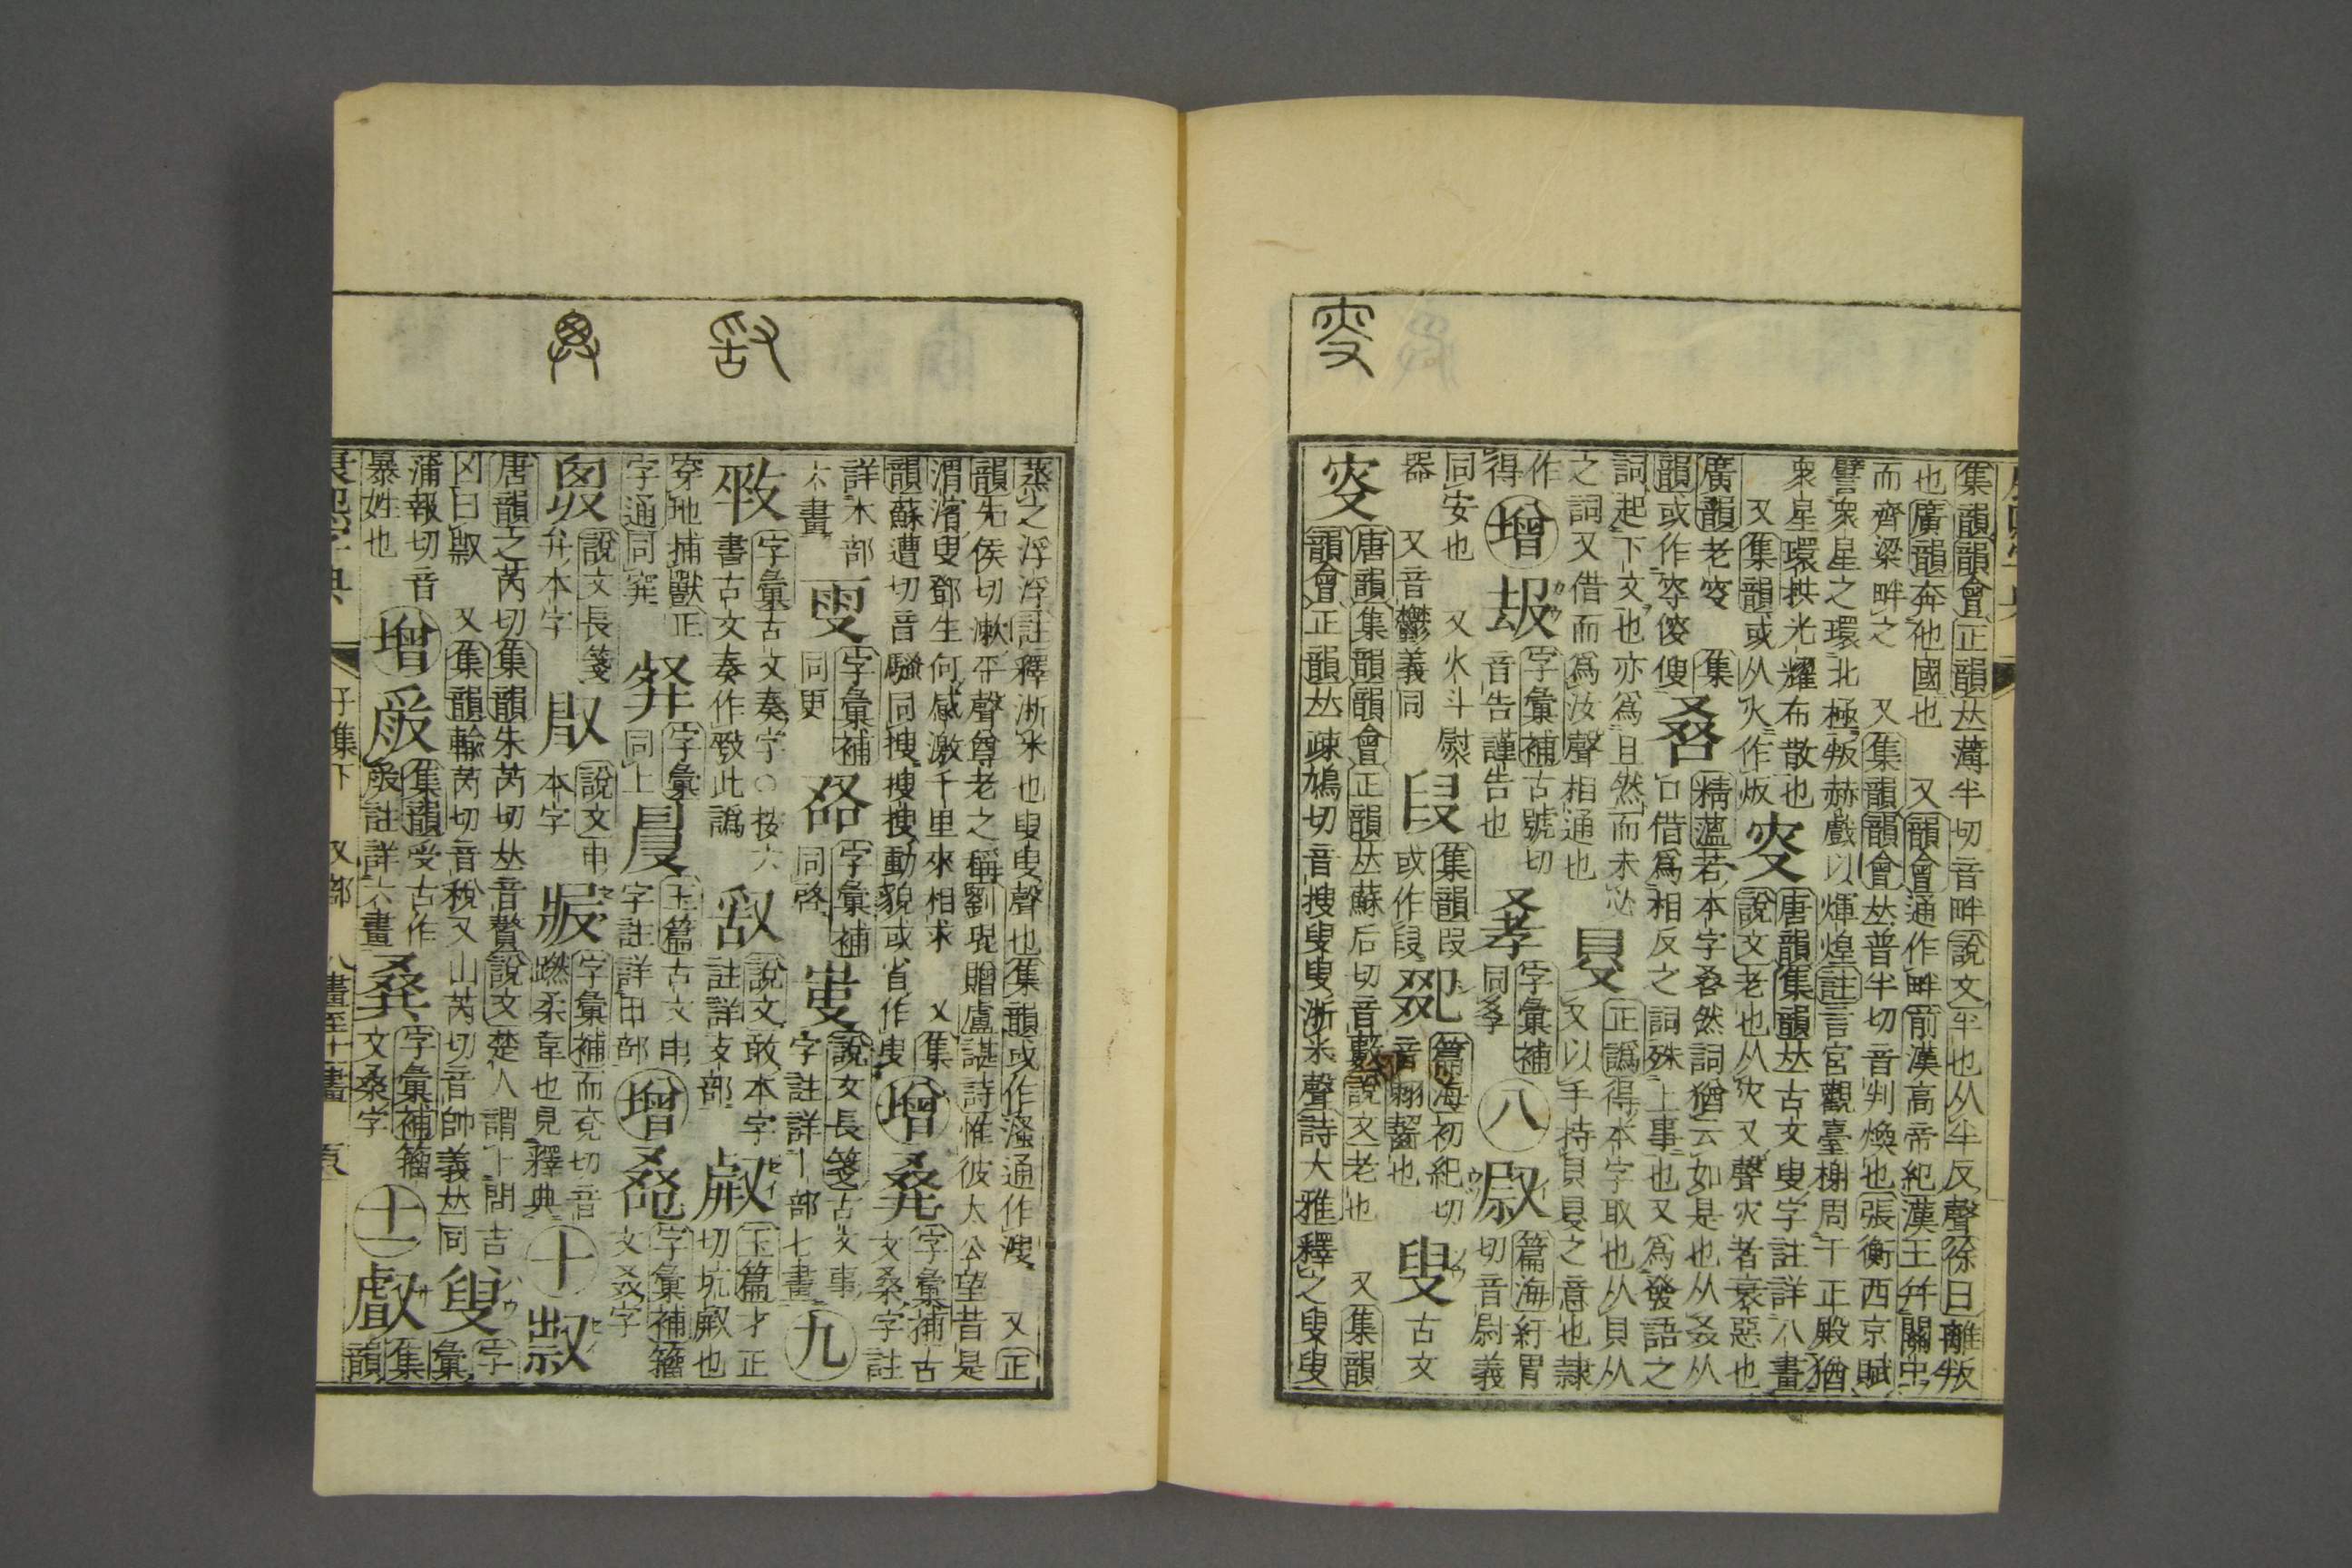 集韻韻會正韻𠀤薄半切音畔說文半也从半反聲徐曰離叛
也廣韻奔他國也 又韻會通作畔前漢高帝紀漢王幷關中
而齊梁畔之 又集韻韻會𠀤普半切音判煥也張衡西京賦
譬衆星之環北極叛赫戲以煇煌註言宮觀臺榭周于正殿猶
衆星環拱光耀布散也
叜
唐韻集韻𠀤古文叟字註詳八畫
說文老也从灾又聲灾者衰惡也
又集韻或从火作㕞
廣韻老叜 集
韻或作㝊傁傻
叒
精薀若本字叒然詞猶云如是也从叒从
口借爲相反之詞殊上事也又爲發語之
詞起下文也亦爲且然而未必
之詞又借而爲汝聲相通也
𠭁
正譌得本字取也从貝从
又以手持貝𠭁之意也隷
作
得
增
㧞
字彙補古號切
音告謹告也
字彙補
同孚
八
㷉
篇海紆胃
切音尉義
同安也 又火斗熨
器 又音鬱義同
叚
集韻叚
或作段
篇海初紀切
音剏齧也
叟
古文
叜
唐韻集韻韻會正韻𠀤蘇后切音藪說文老也 又集韻
韻會正韻𠀤疎鳩切音搜叟叟淅米聲詩大雅釋之叟叟
蒸之浮浮註釋淅米也叟叟聲也集韻或作溞通作溲 又正
韻先侯切漱平聲尊老之稱劉琨贈盧諶詩惟彼太公望昔是
渭濱叟鄧生何感激千里來相求 又集
韻蘇遭切音騷同搜搜搜動貌或省作叟
增
字彙補古
文桑字註
詳木部
六畫
㪅
字彙補
同更
字彙補
同啓
說文長箋古文事
字註詳亅部七畫
九
字彙古文奏字○按六
書古文奏作㪟此譌
敢
說文敢本字
註詳攴部
叡
玉篇才正
切坑叡也
穿地捕獸正
字通同穽
字彙
同上
玉篇古文申
字註詳田部
增
字彙補籀
文叒字
說文長箋
弁本字
說文申
本字
字彙補而兗切音
蹨柔韋也見釋典
十
𣤶
唐韻之芮切集韻朱芮切𠀤音贅說文楚人謂卜問吉
凶曰𣤶 又集韻輸芮切音稅又山芮切音帥義𠀤同
叟
字
彙
蒲報切音
暴姓也
增
集韻受古作
𤔲註詳六畫
字彙補籀
文桑字
十一
㪥
集
韻
康熙字典 子集下 又部 八畫至十一畫 頁